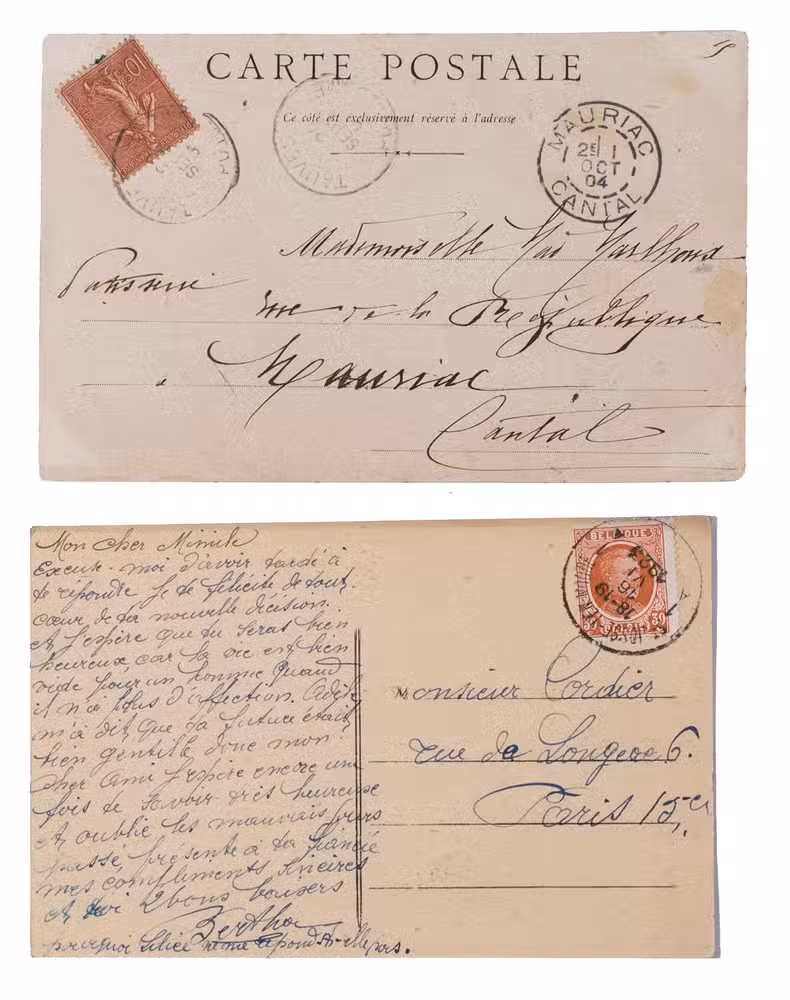 10c
CARTE POSTALE
Ce côté est exclusivement réservé à l'adresse
TAUVES
TAUVES
MAURIAC
25 1
OCT
04
CANTAL
Mademoiselle
Patisserie
rue de la République
a Mauriac
Cantal
Mon cher Mimile
Excuse-moi d'avoir tardé à
te répondre je te félicite de tout
cœur de ta nouvelle décision.
et j'espère que tu seras bien
heureux, car la vie est bien
vide pour un homme quand
il n'a plus d'affection.
m'a dit que ta future était
bien gentille donc mon
cher ami j'espère encore une
fois te savoir très heureuse
et oublie les mauvais jours
passé, présente à ta fiancé
mes compliments sincères
et toi 2 bons baisers
Bertha
pourquoi ne me répond-elle pas.
BELGIQUE
18-19
16
VI
1923
Monsieur Cordier
rue de 6.
Paris 15e